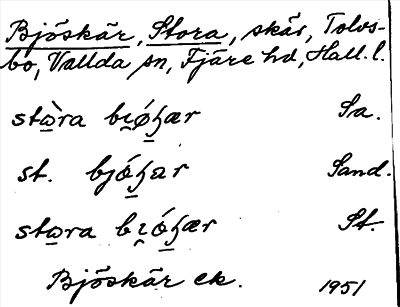 Bjöskär, Stora, skär, Tolvs-
bo, Vallda sn, Fjäre hd, Hall. l.
stɷ̀ra bı̯ǿʒær Sa.
st. bjǿʒær Sand.
stɷra bı̯ǿʒær St.
Bjöskär ek. 1951